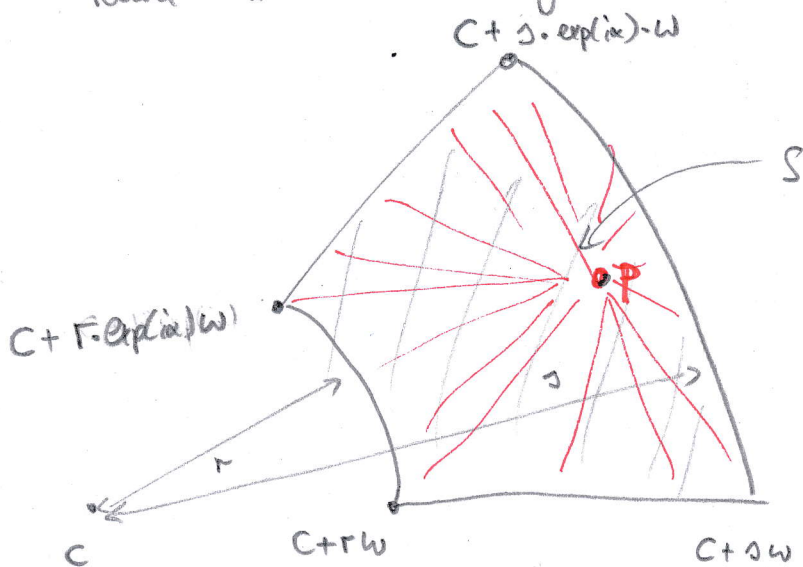 C + s.exp(iα).w
S
P
C + r.exp(iα)w
s
r
C
C+rw
C+sw